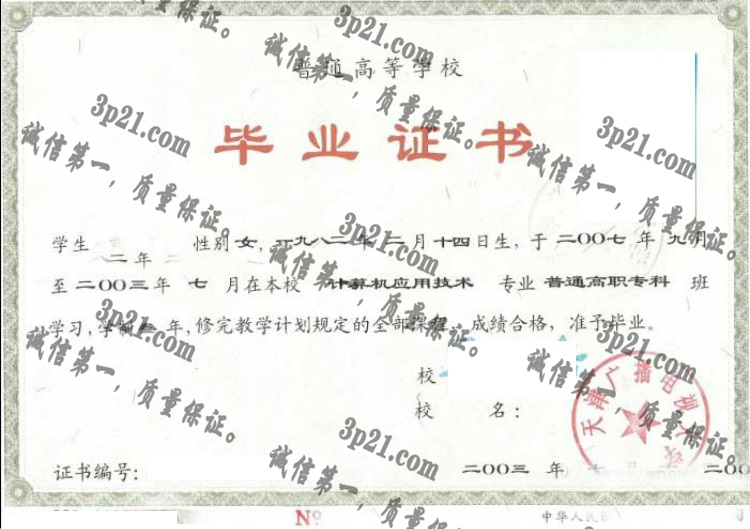 普通高等学校
毕业证书
学生 性别 女，一九八二年 二月十四日生，于 二〇〇七 年 九月
二年
至 二〇〇三年 七 月在本校 计算机应用技术 专业 普通高职专科 班
学习，学制 年，修完教学计划规定的全部课程，成绩合格，准予毕业。
校
校 名：
天津广播电视
证书编号：
二〇〇三 年 月
Nº
中华人民
3p21.com
诚信第一，质量保证。
3p21.com
诚信第一，质量保证。
3p21.com
诚信第一，质量保证。
3p21.com
诚信第一，质量保证。
3p21.com
诚信第一，质量保证。
3p21.com
诚信第一，质量保证。
诚信第一，质量保证。